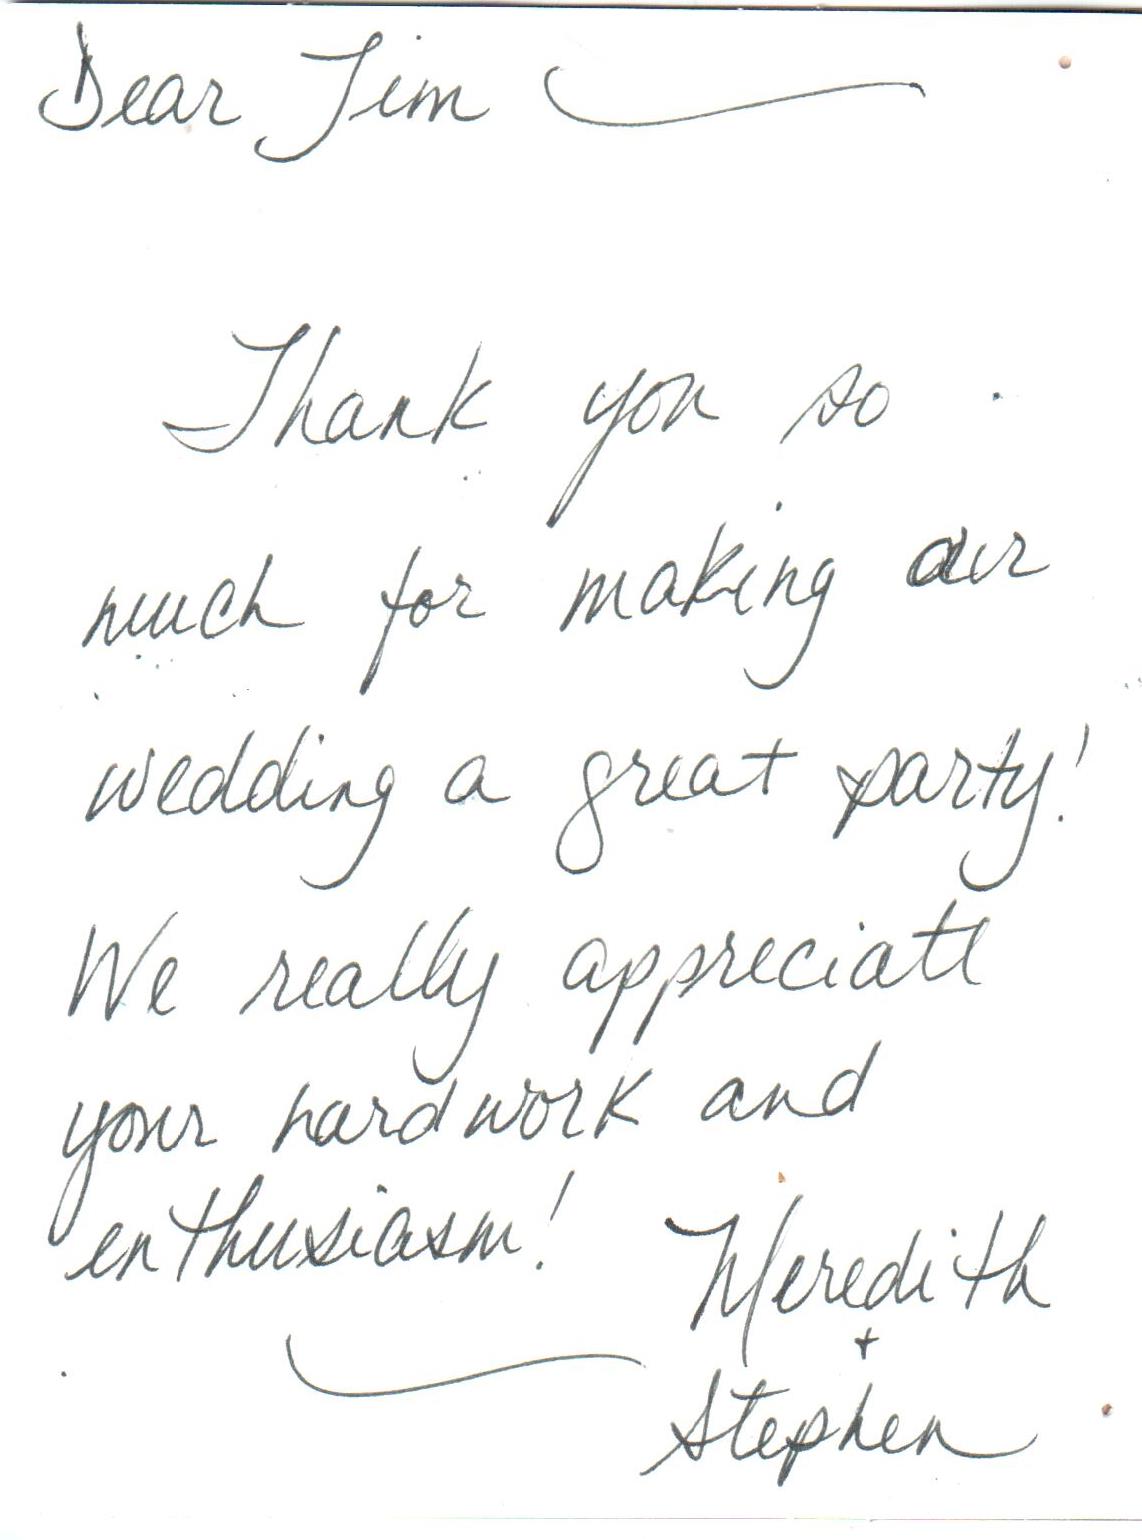 Dear Jim
Thank you so
much for making our
wedding a great party!
We really appreciate
your hard work and
enthusiasm!
Meredith
+
Stephen